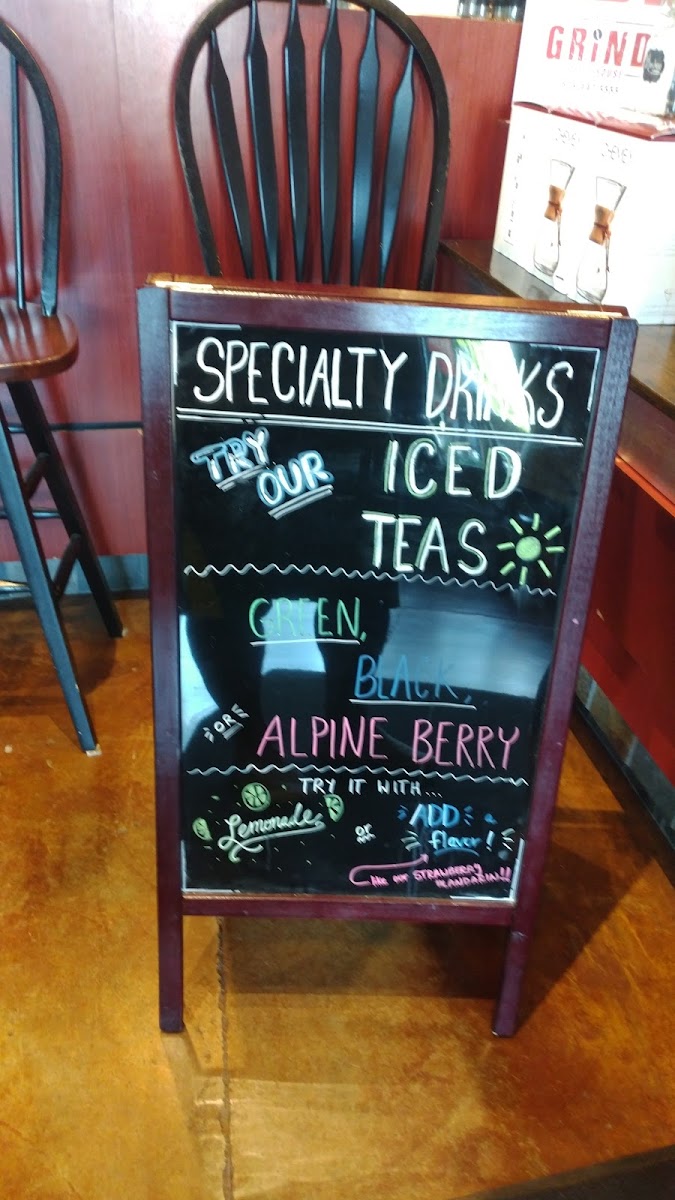 GRIND
CHEMEX
CHEMEX
SPECIALTY DRINKS
TRY OUR
ICED
TEAS
GREEN,
BLACK,
OR
ALPINE BERRY
TRY IT WITH...
Lemonade
or
ADD a
flavor!
like our STRAWBERRY
MANDARIN!!